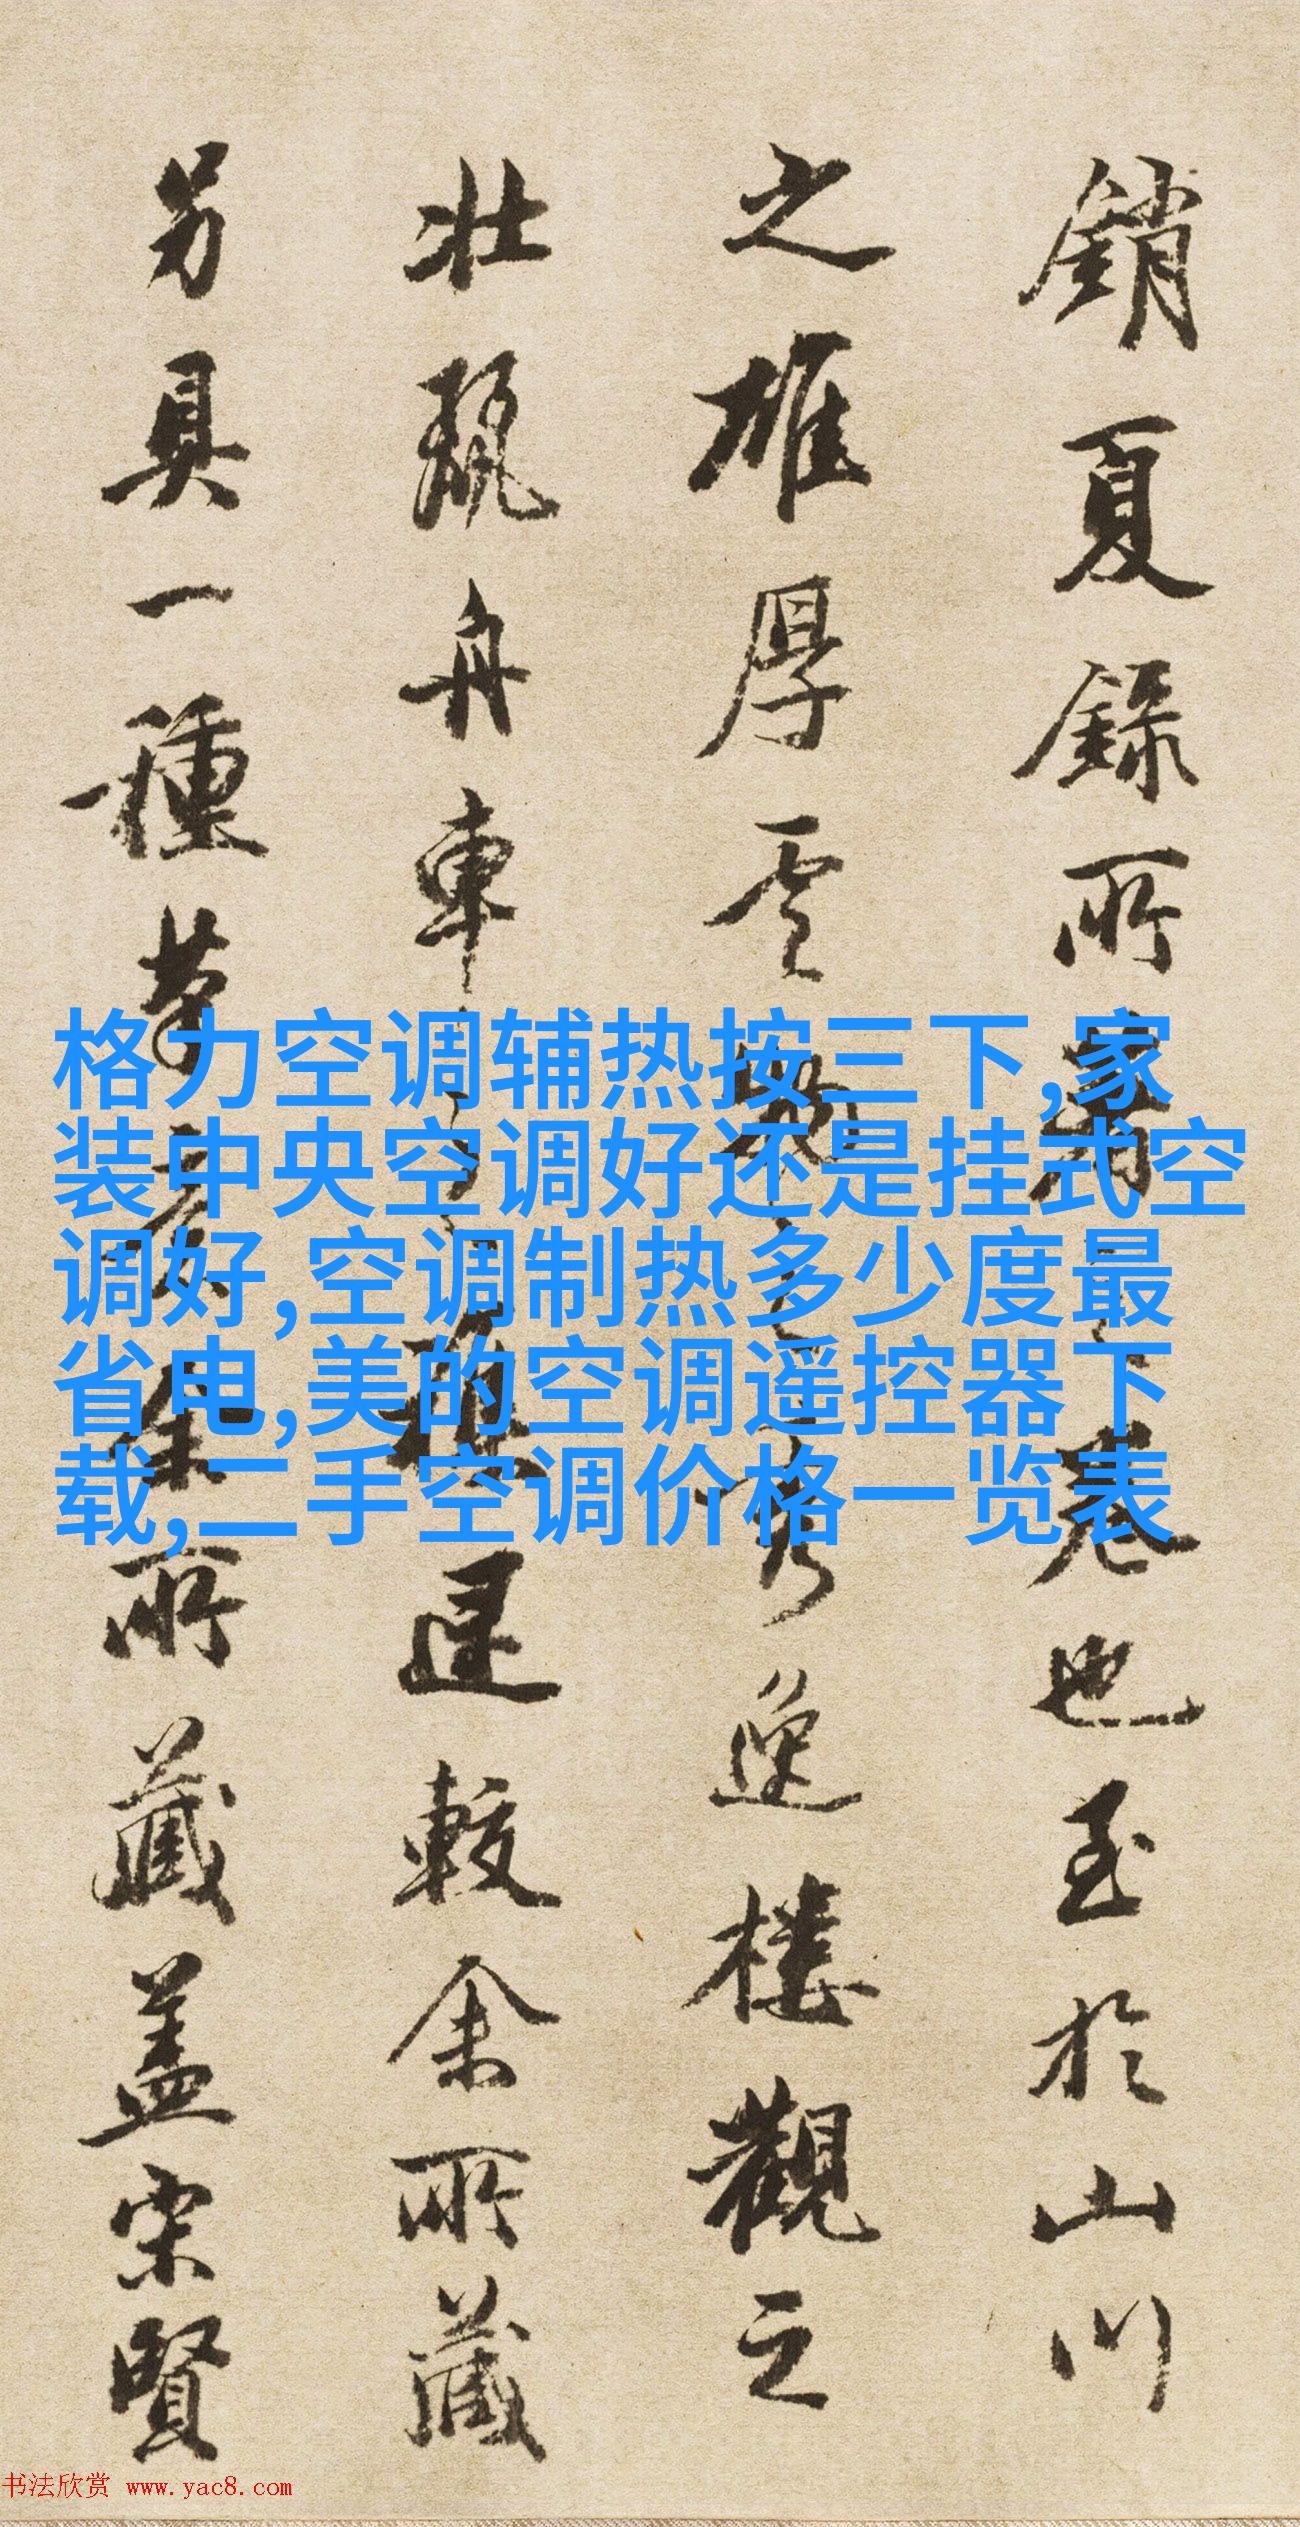 銷夏録所卷也至於山川
之雄厚雲之秀逸樓觀之
壯麗舟車較余所藏
另具一種筆余所藏蓋宋賢
格力空调辅热按三下,家
装中央空调好还是挂式空
调好,空调制热多少度最
省电,美的空调遥控器下
载,二手空调价格一览表
书法欣赏 www.yac8.com